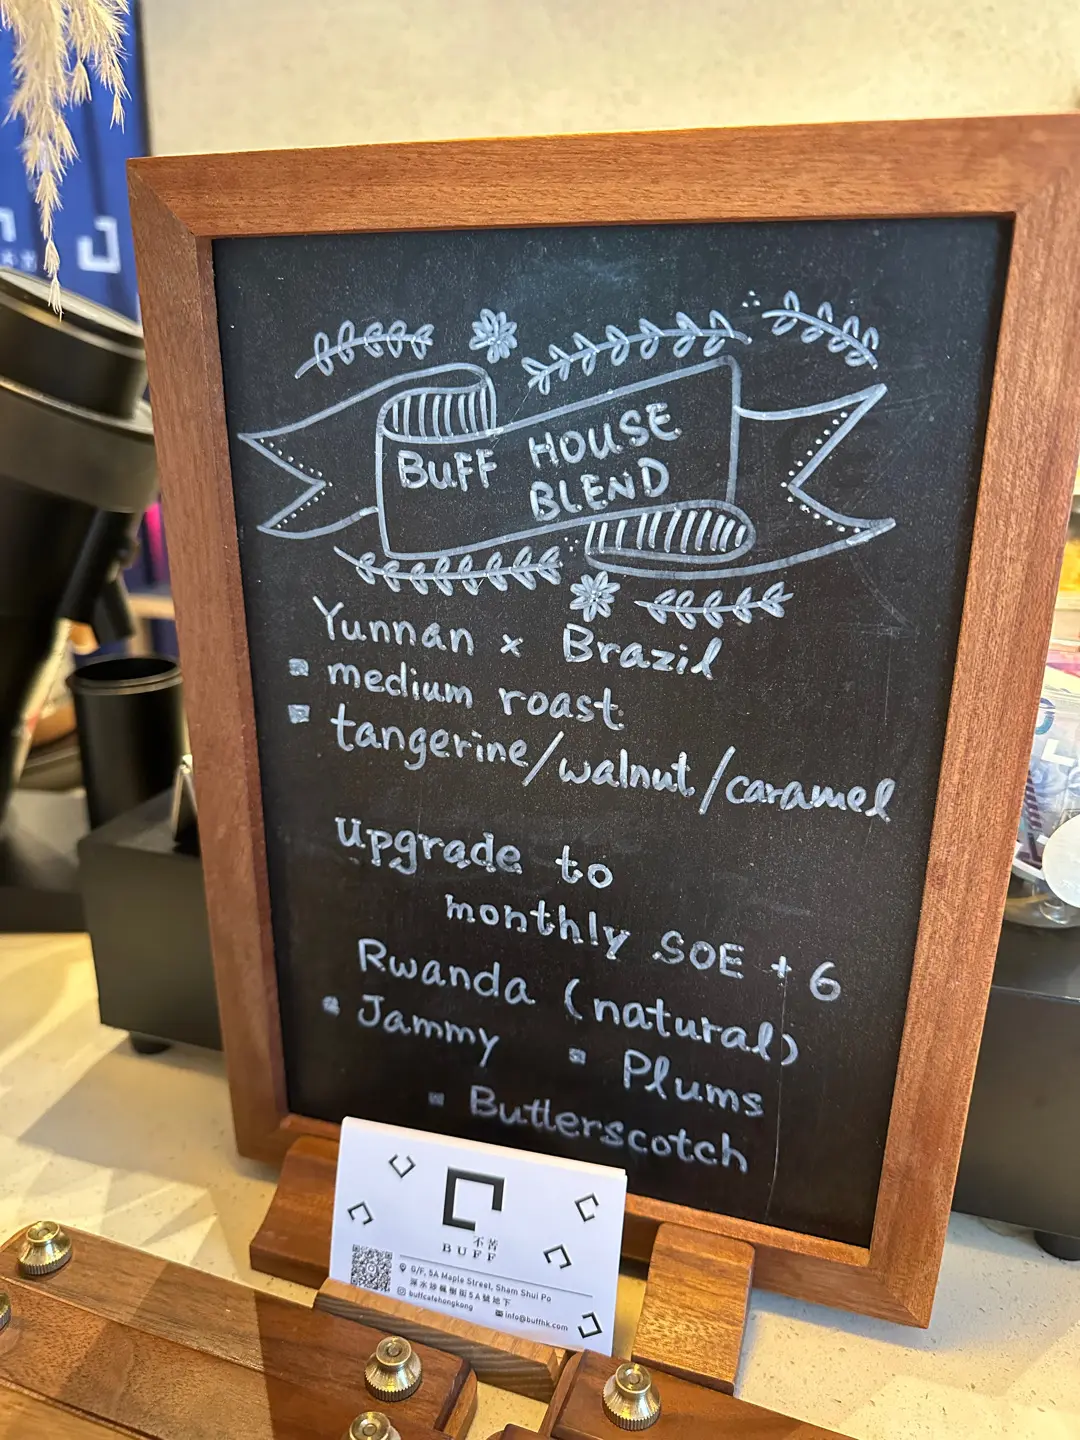 BUFF HOUSE
BLEND
Yunnan x Brazil
medium roast
tangerine/walnut/caramel
Upgrade to
monthly SOE + 6
Rwanda (natural)
Jammy
Plums
Butterscotch
不苦
BUFF
G/F, 5A Maple Street, Sham Shui Po
深水埗楓樹街5A號地下
buffcafehongkong
info@buffhk.com